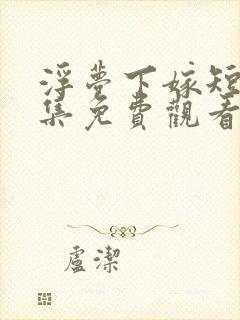 浮夢下嫁短
集免費觀看
盧潔